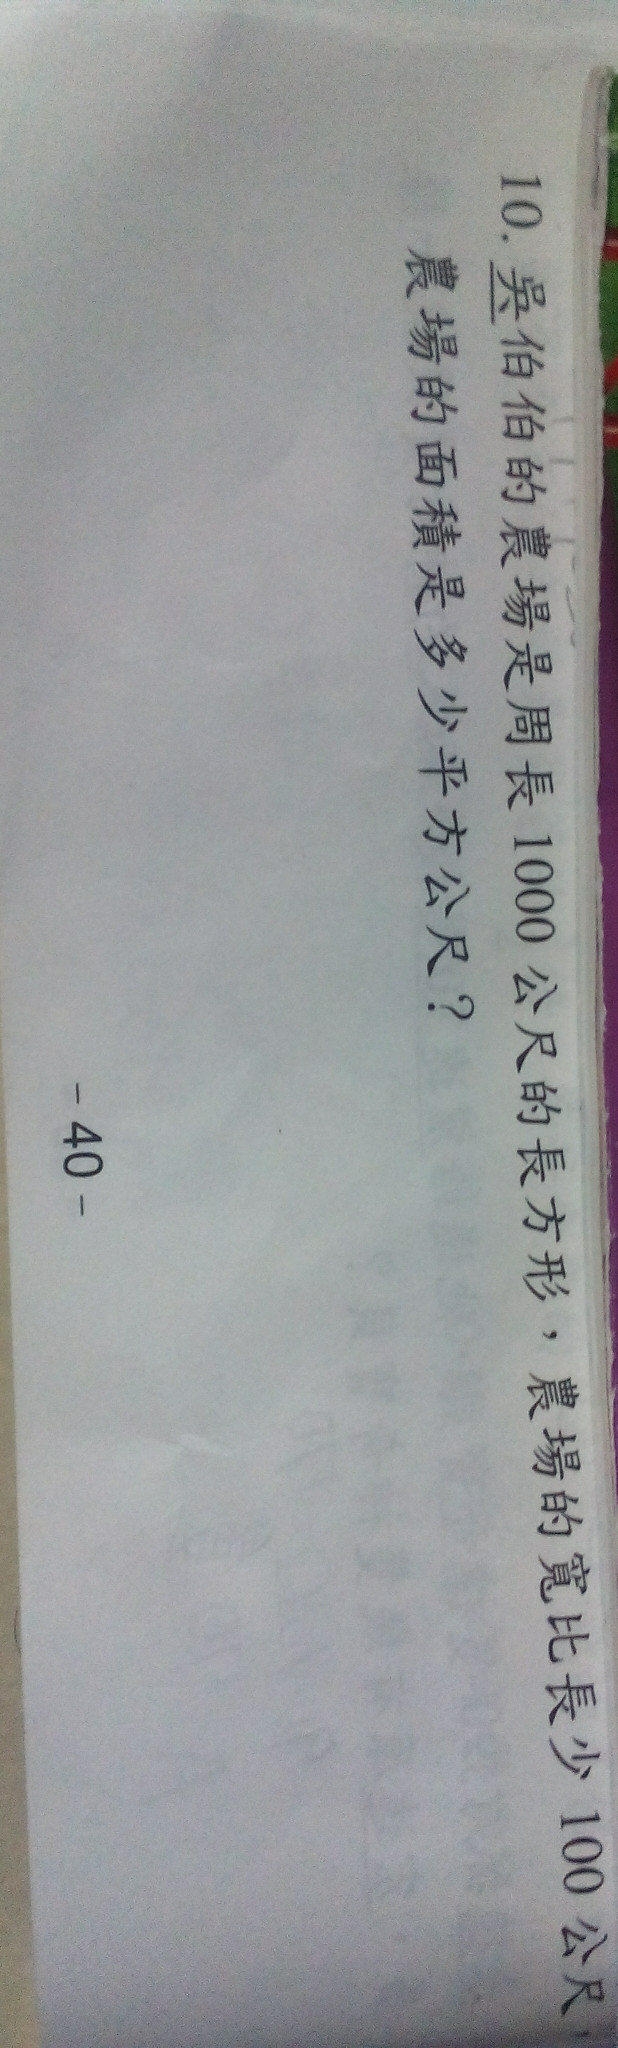 10. 吳伯伯的農場是周長 1000 公尺的長方形，農場的寬比長少 100 公尺，
農場的面積是多少平方公尺？
- 40 -